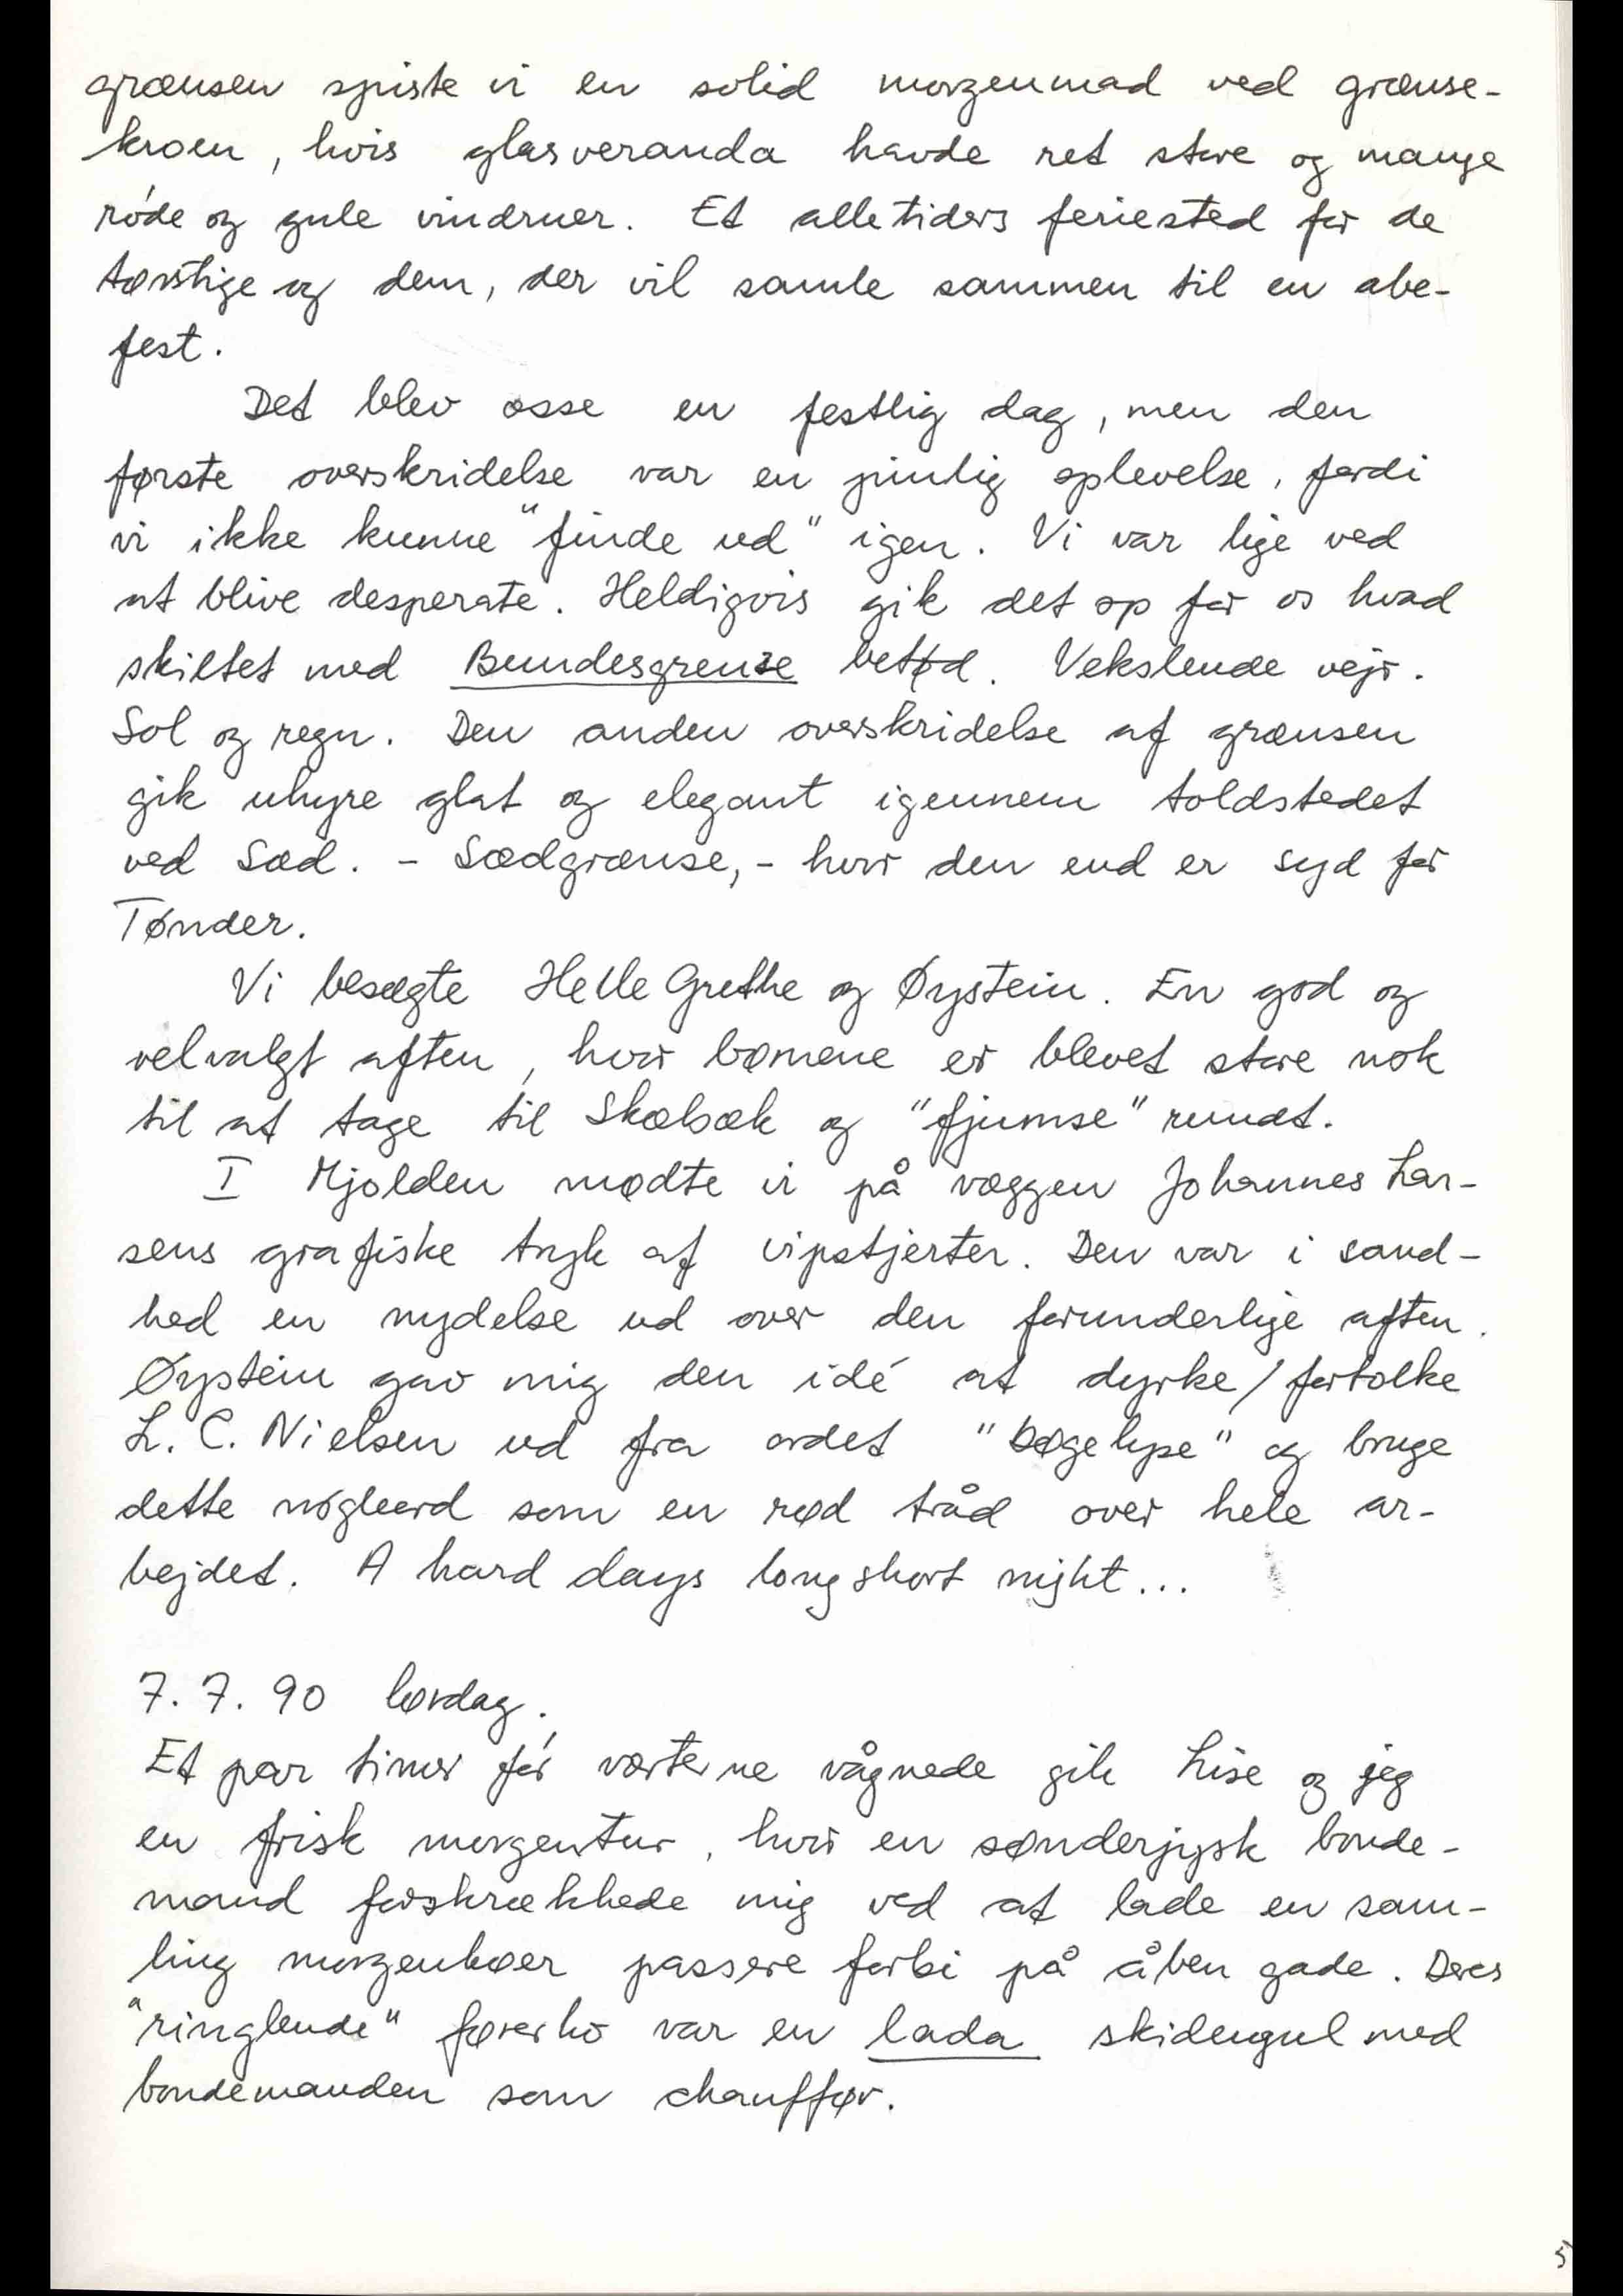 grænsen spiste vi en solid morgenmad ved grænse-
kroen, hvis glasveranda havde ret store og mange
røde og gule vindruer. Et alletiders feriested for de
tørstige og dem, der vil samle sammen til en abe-
fest.
Det blev osse en festlig dag, men den
første overskridelse var en pinlig oplevelse, fordi
vi ikke kunne "finde ud" igen. Vi var lige ved
at blive desperate. Heldigvis gik det op for os hvad
skiltet med Bundesgrenze betød. Vekslende vejr.
Sol og regn. Den anden overskridelse af grænsen
gik uhyre glat og elegant igennem toldstedet
ved Sæd. - Sædgrænse, - hvor den end er syd for
Tønder.
Vi besøgte Helle Grethe og Øystein. En god og
velvalgt aften, hvor børnene er blevet store nok
til at tage til Skælsæk og "fjumse" rundt.
I Mjolden mødte vi på væggen Johannes Lar-
sens grafiske tryk af vipstjerter. Den var i sand-
hed en nydelse ud over den forunderlige aften.
Øystein gav mig den idé at dyrke/fortolke
L. C. Nielsen ud fra ordet "bøgelyse" og bruge
dette nøgleord som en rød tråd over hele ar-
bejdet. A hard days long short night...
7.7.90 lørdag.
Et par timer før værterne vågnede gik Lise og jeg
en frisk morgentur, hvor en sønderjysk bonde-
mand forskrækkede mig ved at lade en sam-
ling morgenkøer passere forbi på åben gade. Deres
"ringlende" førerko var en lada skidengul med
bondemanden som chauffør.
5